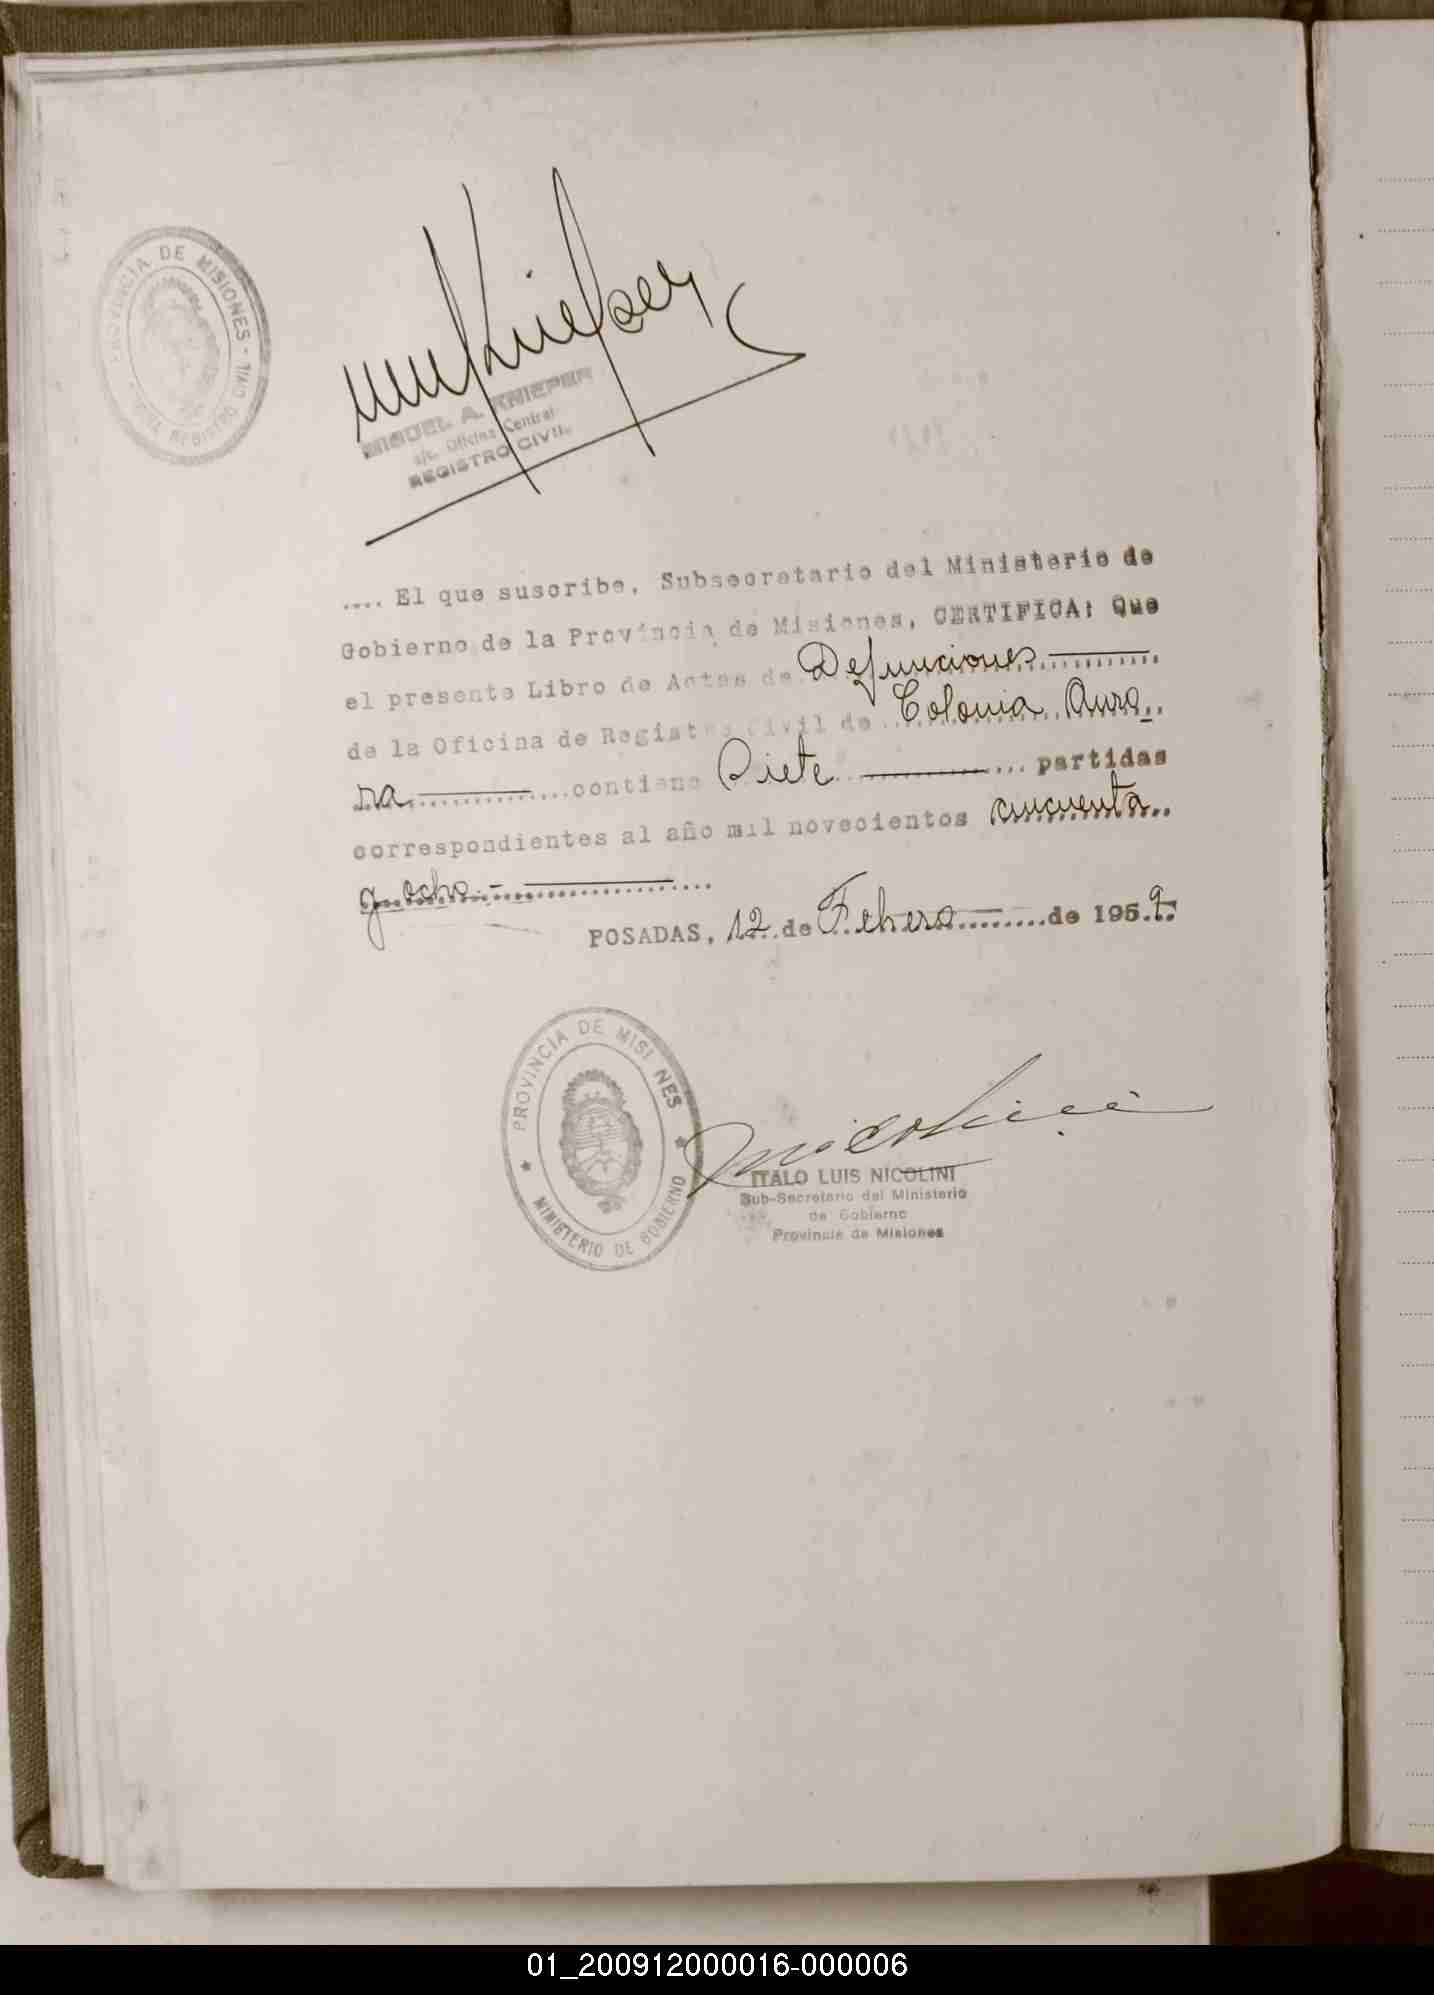 PROVINCIA DE MISIONES - 
REGISTRO CIVIL
MIGUEL A. KNIEPER
a/c. Oficina Central
REGISTRO CIVIL
.... El que suscribe, Subsecretario del Ministerio de
Gobierno de la Provincia de Misiones, CERTIFICA: Que
el presente Libro de Actas de Defunciones
de la Oficina de Registro Civil de Colonia Auro_
ra contiene Siete partidas
correspondientes al año mil novecientos cincuenta
y ocho.-
POSADAS, 12 de Febrero de 1959.
PROVINCIA DE MISI NES
MINISTERIO DE GOBIERNO
Nicolini
ITALO LUIS NICOLINI
Sub-Secretario del Ministerio
de Gobierno
Provincia de Misiones
01_200912000016-000006